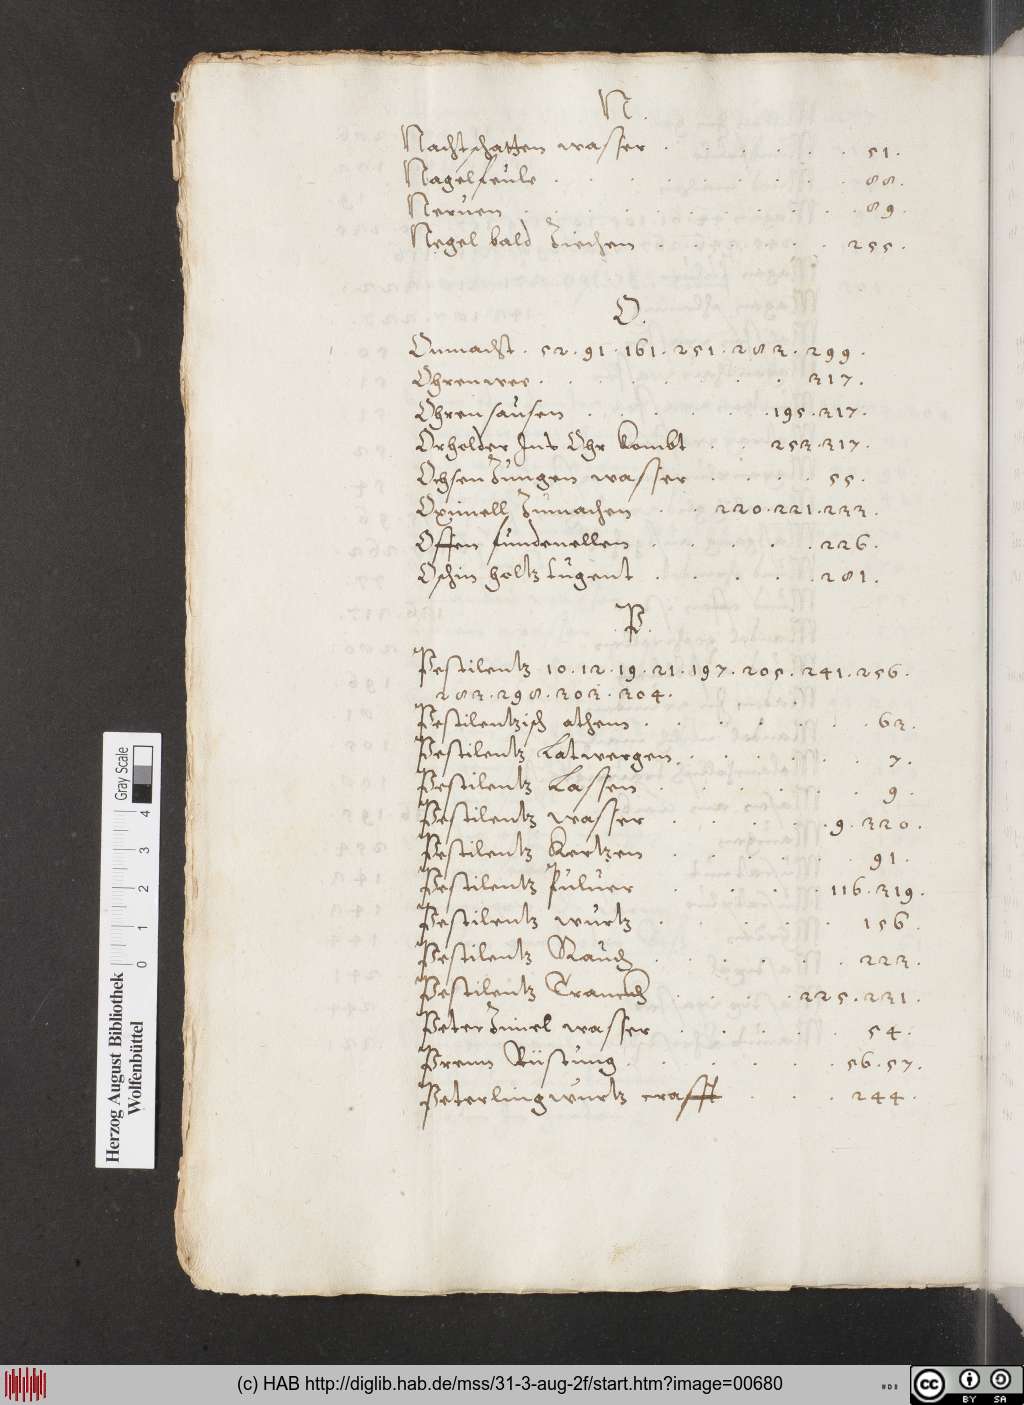 N.
Nachtschatten wasser . . . . . . 51.
Nagelfeule . . . . . . . . . 88.
Neruen . . . . . . . . . . 89.
Negel bald Ziechen . . . . . 255.
O.
Onmacht. 52. 91. 161. 251. 283. 299.
Ohrenwee. . . . . . . . . 317.
Ohren sausen . . . . . 195. 317.
Orholder Ins Ohr kombt . . 253. 317.
Ochsen Zungen wasser . . . . 55.
Oximell Zumachen . . 220. 221. 233.
Offen . . . . . 226.
holtz tugent . . . . . 281.
P.
Pestilentz 10. 12. 19. 21. 197. 205. 241. 256.
283. 298. 303. 304.
Pestilentzisch athem . . . . . . . 63.
Pestilentz Latwergen . . . . . . 7.
Pestilentz Lassen . . . . . . . 9.
Pestilentz wasser . . . . . 9. 320.
Pestilentz Kertzen . . . . . . 91.
Pestilentz Puluer . . . . 116. 319.
Pestilentz wurtz . . . . . . 156.
Pestilentz Rauch . . . . . . 223.
Pestilentz Tranck . . . . 225. 231.
Peter Zimel wasser . . . . 54.
Prenn Rüstung . . . . . . 56. 57.
Peterlingwurtz crafft . . . 244.
Gray Scale
4
3
2
1
0
Herzog August Bibliothek
Wolfenbüttel
(c) HAB http://diglib.hab.de/mss/31-3-aug-2f/start.htm?image=00680
cc BY SA